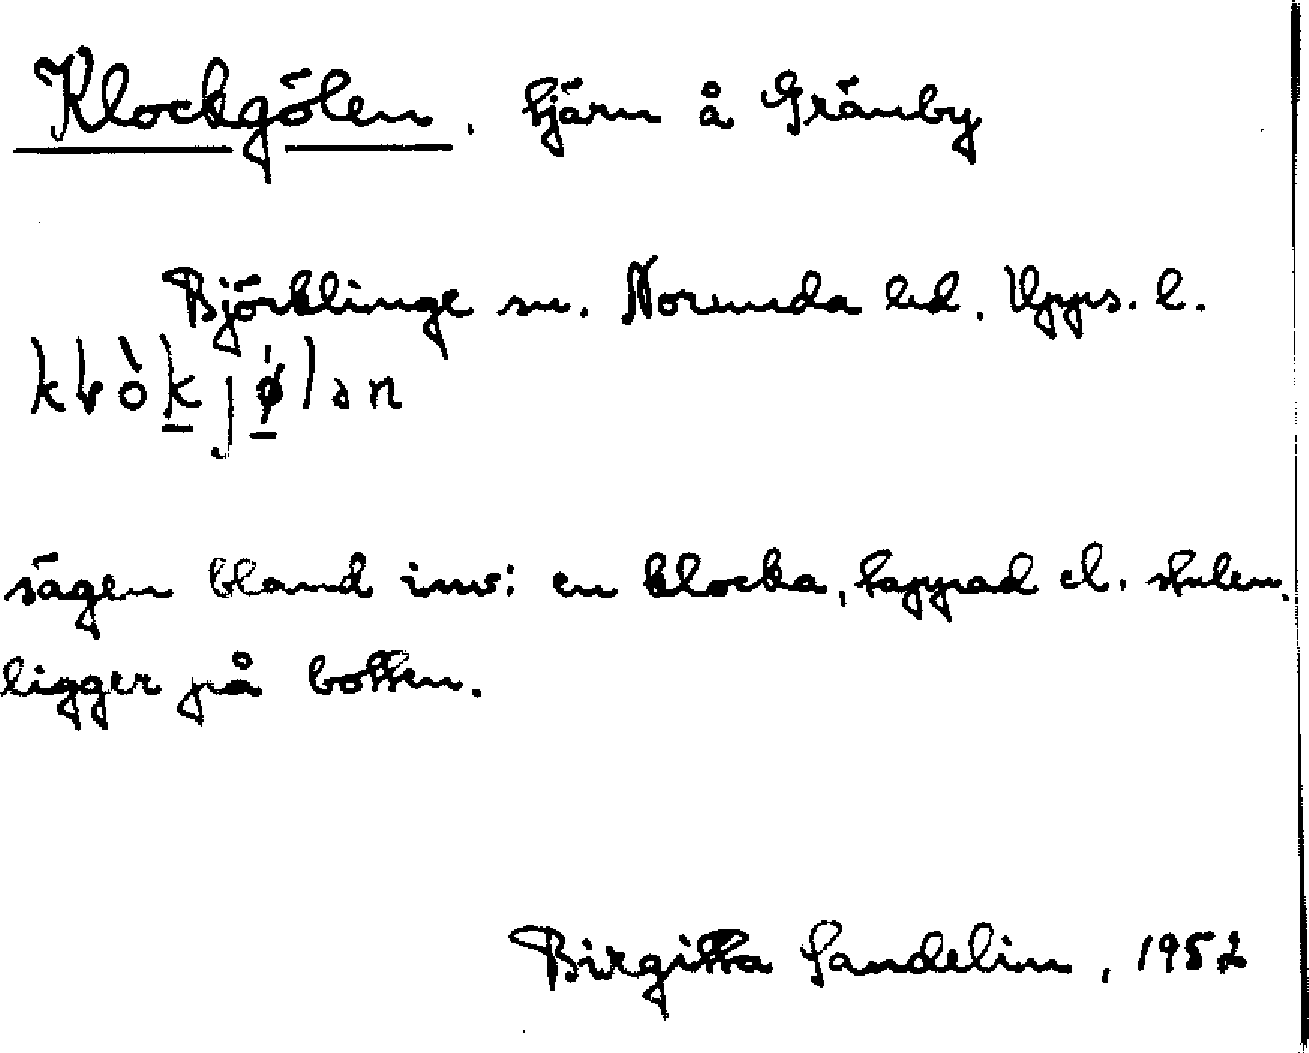 Klockgölen, tjärn å Gränby
Björklinge sn. Norunda hd. Upps. l.
sägen bland inv: en klocka, tappad el. stulen,
ligger på botten.
Birgitta Sandelin, 1952